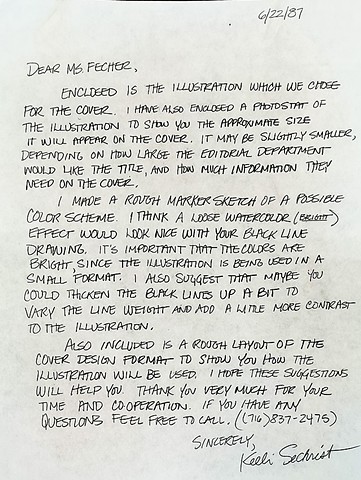 6/22/87
DEAR MS. FECHER,
ENCLOSED IS THE ILLUSTRATION WHICH WE CHOSE
FOR THE COVER. I HAVE ALSO ENCLOSED A PHOTOSTAT OF
THE ILLUSTRATION TO SHOW YOU THE APPROXIMATE SIZE
IT WILL APPEAR ON THE COVER. IT MAY BE SLIGHTLY SMALLER,
DEPENDING ON HOW LARGE THE EDITORIAL DEPARTMENT
WOULD LIKE THE TITLE, AND HOW MUCH INFORMATION THEY
NEED ON THE COVER.
I MADE A ROUGH MARKER SKETCH OF A POSSIBLE
COLOR SCHEME. I THINK A LOOSE WATERCOLOR (BRIGHT)
EFFECT WOULD LOOK NICE WITH YOUR BLACK LINE
DRAWING. IT'S IMPORTANT THAT THE COLORS ARE
BRIGHT, SINCE THE ILLUSTRATION IS BEING USED IN A
SMALL FORMAT. I ALSO SUGGEST THAT MAYBE YOU
COULD THICKEN THE BLACK LINES UP A BIT TO
VARY THE LINE WEIGHT AND ADD A LITTLE MORE CONTRAST
TO THE ILLUSTRATION.
ALSO INCLUDED IS A ROUGH LAYOUT OF THE
COVER DESIGN FORMAT TO SHOW YOU HOW THE
ILLUSTRATION WILL BE USED. I HOPE THESE SUGGESTIONS
WILL HELP YOU. THANK YOU VERY MUCH FOR YOUR
TIME AND CO-OPERATION. IF YOU HAVE ANY
QUESTIONS FEEL FREE TO CALL. ((716) 837-2475)
SINCERELY,
Kelli Sechrist